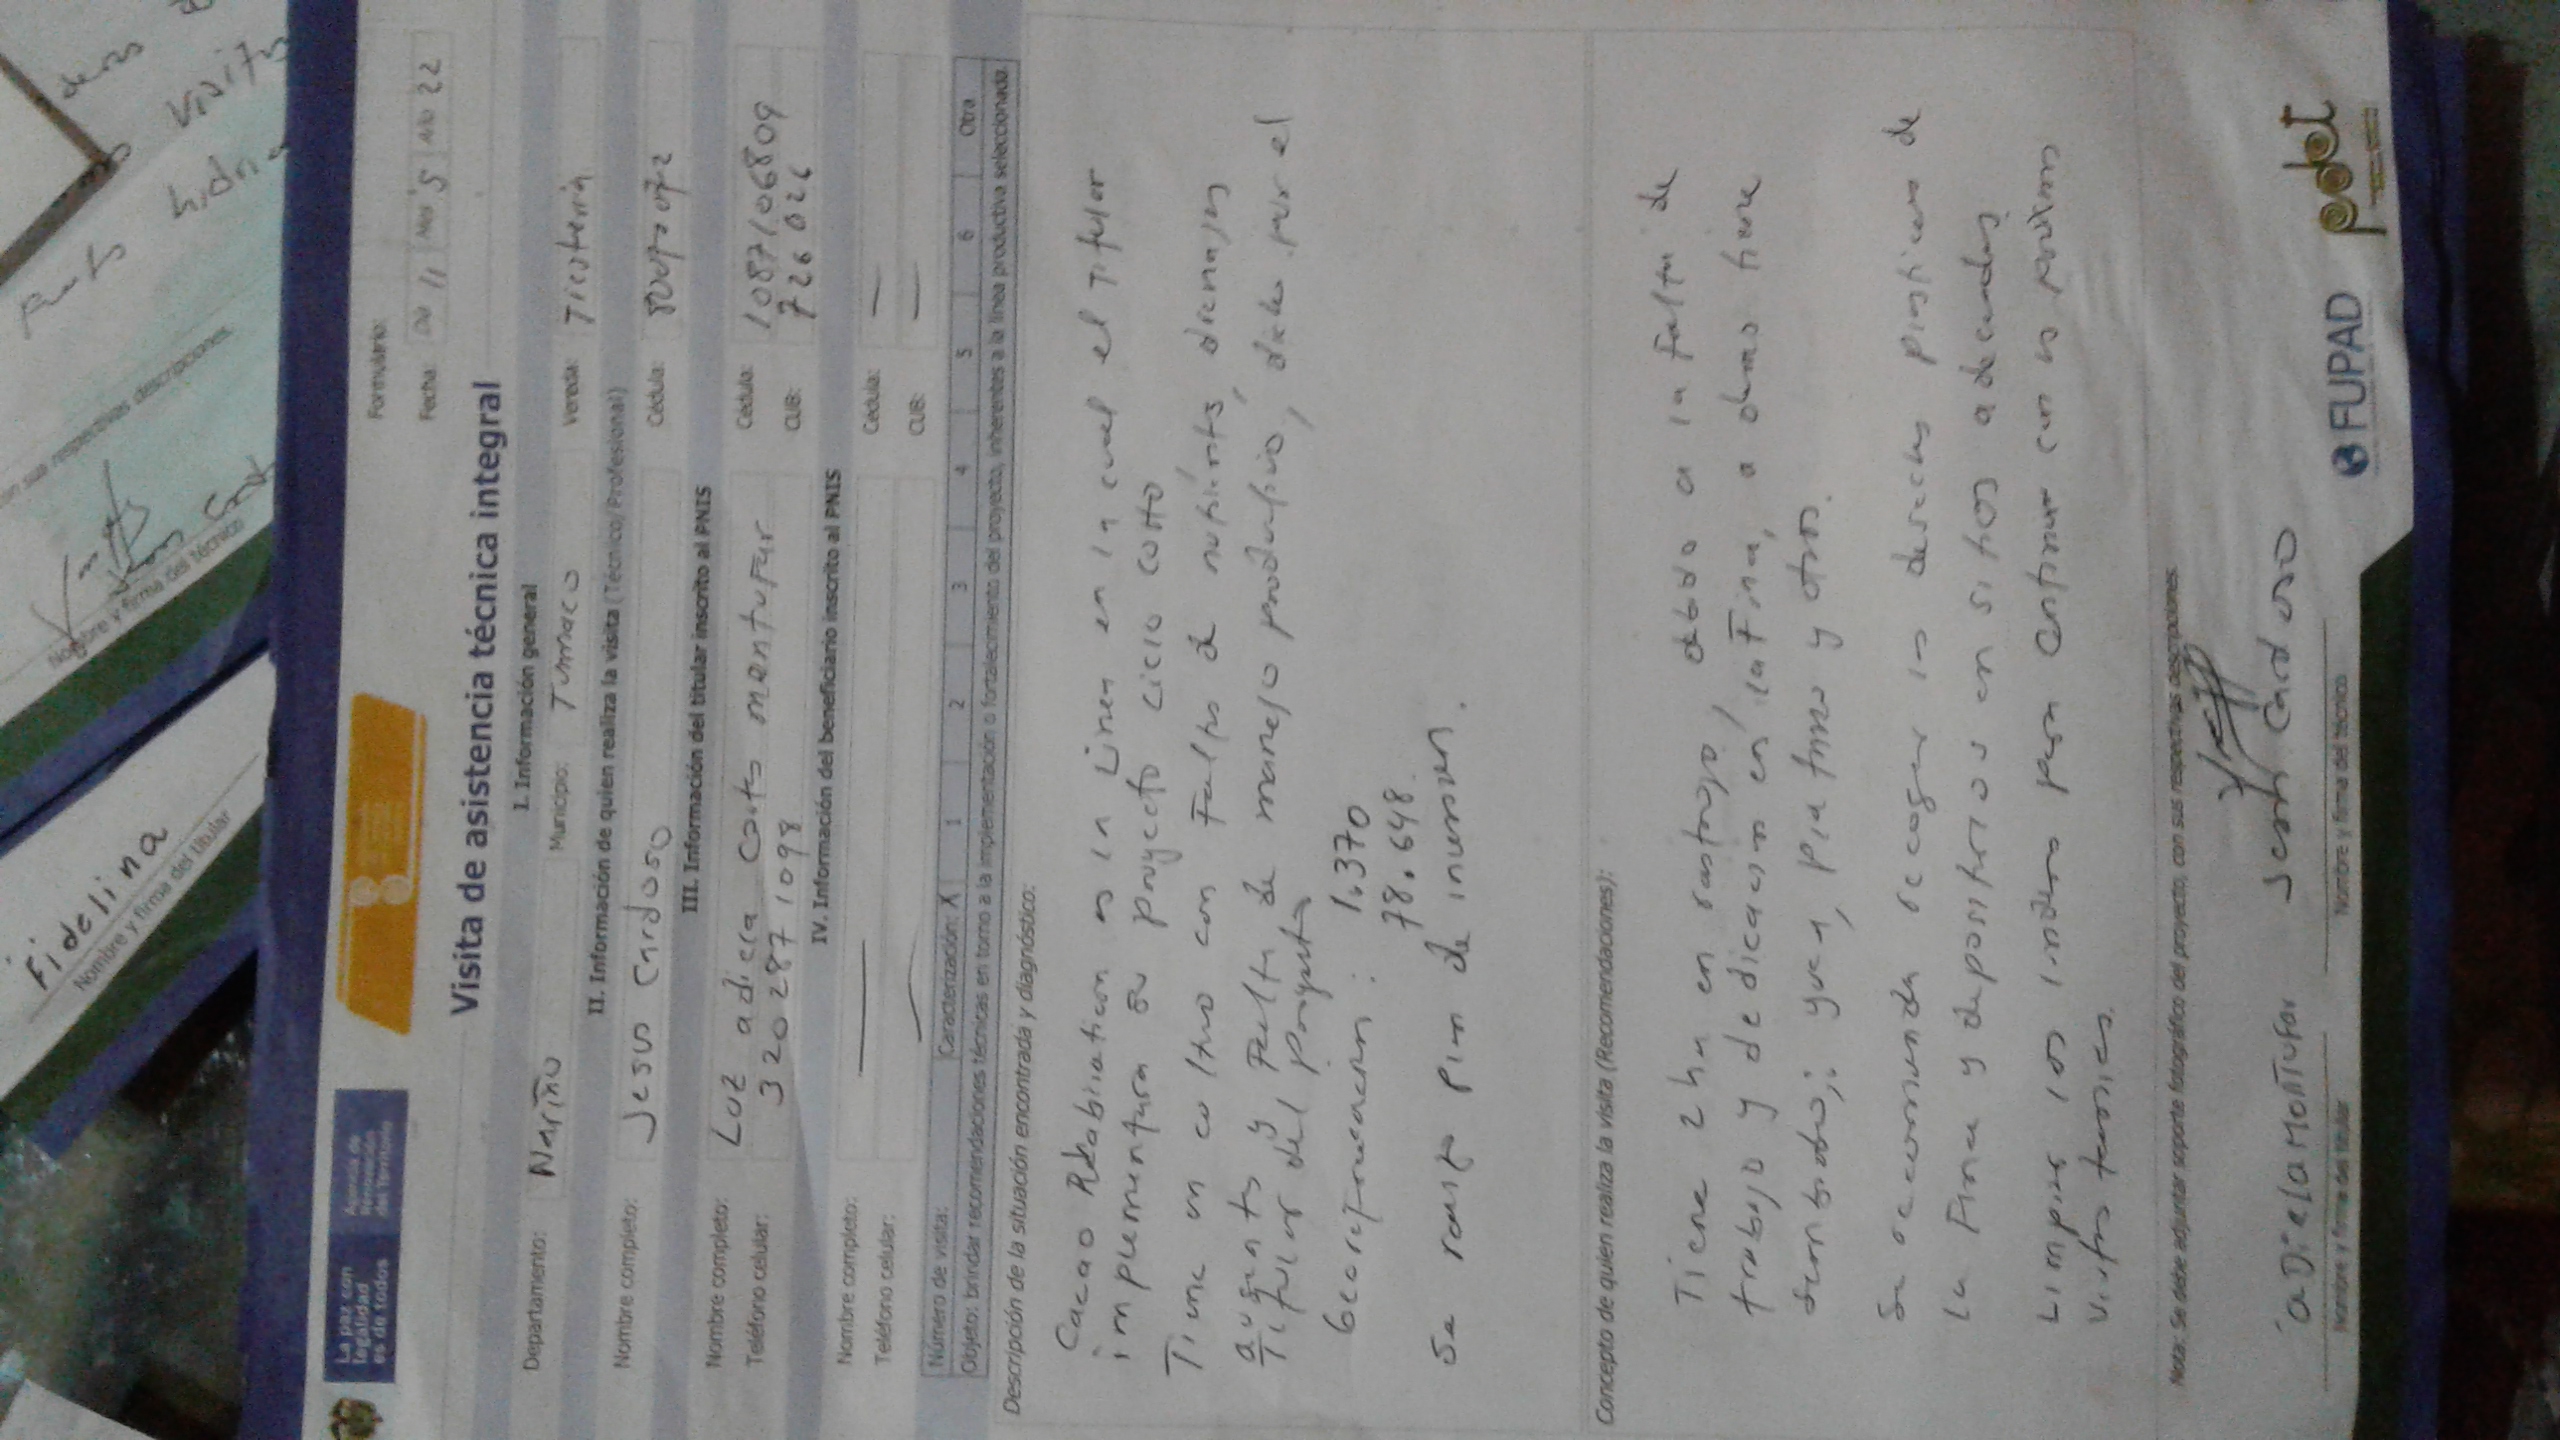 La paz con
legalidad
es de todos
Agencia de
Renovación
del Territorio
Formulario:
Fecha: Día 11 Mes 5 Año 22
Visita de asistencia técnica integral
I. Información general
Departamento: Nariño Municipio: Tumaco Vereda:
II. Información de quien realiza la visita (Técnico/Profesional)
Nombre completo: Jesus Cardoso Cédula:
III. Información del titular inscrito al PNIS
Nombre completo: Luz adiela Cortes montufar Cédula: 1087106809
Teléfono celular: 320 287 1098 CUB: 726026
IV. Información del beneficiario inscrito al PNIS
Nombre completo: — Cédula: —
Teléfono celular: — CUB: —
Número de visita: Caracterización: X 1 2 3 4 5 6 Otra
Objeto: brindar recomendaciones técnicas en torno a la implementación o fortalecimiento del proyecto, inherentes a la línea productiva seleccionada.
Descripción de la situación encontrada y diagnóstico:
Cacao es la Linea en la cual el Titular
implementara su proyecto ciclo corto
Tiene un cultivo con Faltas de nutrientes, drenajes
y Falta de manejo productivo, dicho por el
Titular del proyecto
Georeferenciacion: 1.370
78.648
Se realizo plan de inversion.
Concepto de quien realiza la visita (Recomendaciones):
Tiene 2 ha en rastrojo, debido a la falta de
trabajo y dedicacion en la Finca, a demas tiene
sembrado; yuca, platano y otros.
Se recomienda recoger los desechos plasticos de
la Finca y depositarlos en sitios adecuados
Limpiar los linderos para continuar con las proximas
visitas
Nota: Se debe adjuntar soporte fotográfico del proyecto, con sus respectivas descripciones.
aDielaMoNTUFar Jesus Cardoso
Nombre y firma del titular Nombre y firma del técnico
FUPAD pdet
Fidelina
Nombre y firma del titular
Nombre y firma del técnico
con sus respectivas descripciones